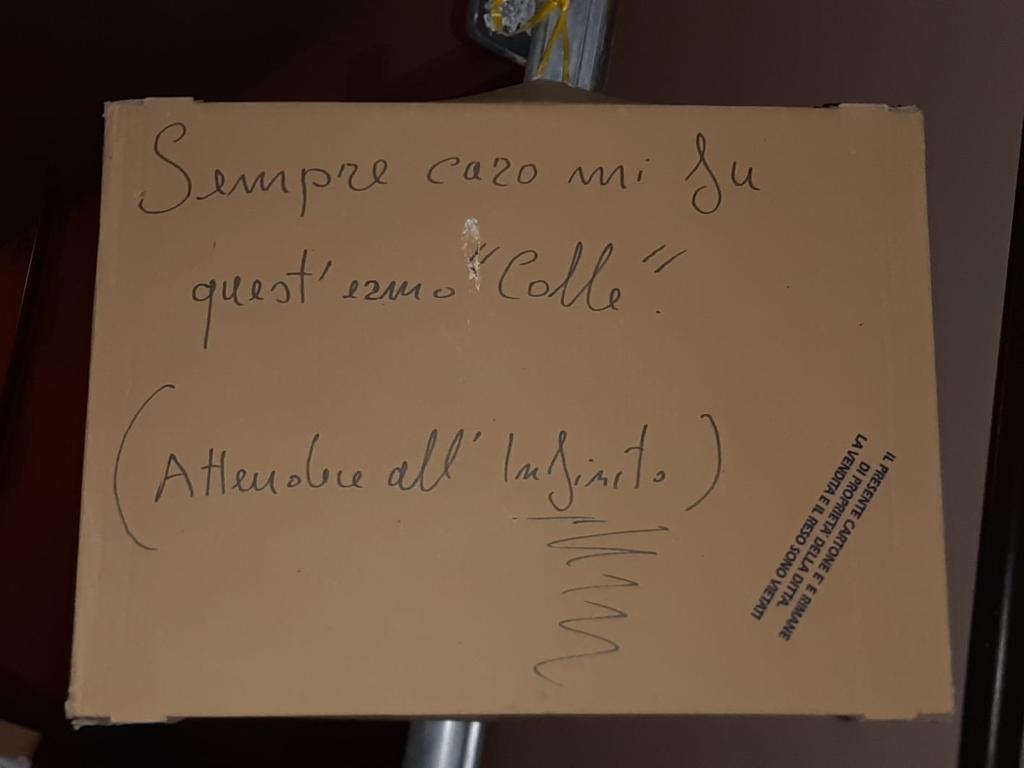 Sempre caro mi fu
quest'ermo "Colle".
(Attendere all'Infinito)
IL PRESENTE CARTONE E' E RIMANE
DI PROPRIETÀ DELLA DITTA.
LA VENDITA E IL RESO SONO VIETATI